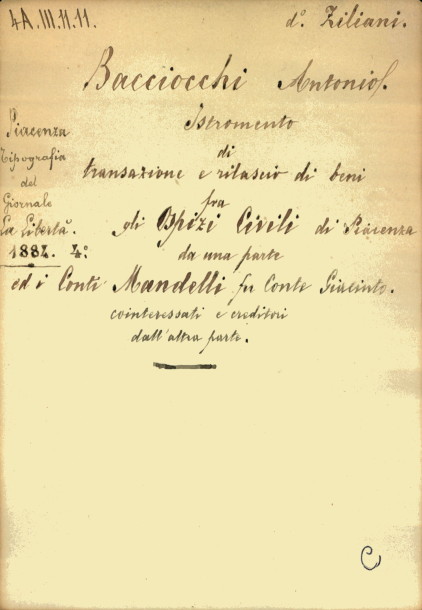 4A.III.11.11.
d°. Ziliani.
Bacciocchi Antonio.
Istromento
di
transazione e rilascio di beni
fra
gli Ospizi Civili di Piacenza
da una parte
ed i Conti Mandelli fu Conte Giacinto.
cointeressati e creditori
dall'altra parte.
Piacenza
Tipografia
del
Giornale
La Libertà.
1884. 4°.
C